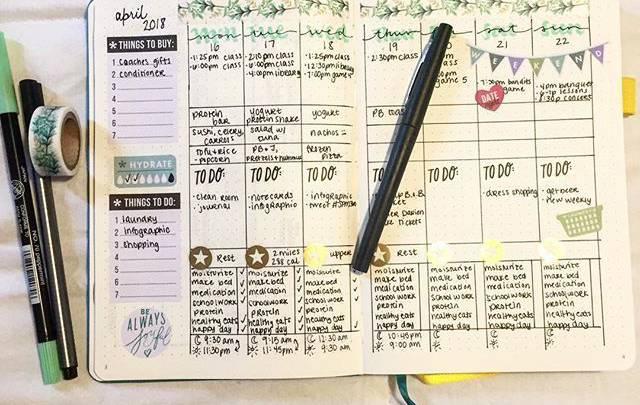 april
2018
* THINGS TO BUY:
1 coaches gifts
2 conditioner
3
4
5
6
7
* HYDRATE
* THINGS TO DO:
1 laundry
2 infographic
3 shopping
4
5
6
7
BE
ALWAYS
joyful
mon
16
• 1:25 pm class
• 6:00pm class
protein
bar
sushi, celery,
carrots
tofu + rice
• popcorn
TO DO:
• clean room
• journal
Rest
moisturize
make bed
medication
schoolwork
protein
healthy eats
happy day
9:30 am
11:30 pm
tue
17
• 2:10pm class
• 6:00pm class
• 4:00pm library
yogurt
protein shake
salad w/
tuna
PB + J,
TO DO:
• notecards
• infographic
2 miles
258 cal
moisturize
make bed
medication
schoolwork
protein
healthy eats
happy day
9:15 am
11:45 pm
wed
18
• 1:25pm class
• 12:30pm library
• 7:00pm game
yogurt
nachos
frozen
pizza
TO DO:
• infographic
upper
moisturize
make bed
medication
school work
protein
healthy eats
happy day
12:30 am
9:30 am
thur
19
• 2:30pm class
PB toast
TO DO:
Tickets
Rest
moisturize
make bed
medication
school work
protein
healthy eats
happy day
10:45 pm
9:00 am
class
game 5
moisturize
make bed
medication
schoolwork
protein
healthy eats
happy day
WEEKEND
sat
21
• 7:30pm bandits
game
DATE
TO DO:
• dress shopping
moisturize
make bed
medication
schoolwork
protein
healthy eats
happy day
sun
22
• 4pm banquet
lessons
• 8:30p concert
TO DO:
• get beer
• new weekly
moisturize
make bed
medication
schoolwork
protein
healthy eats
happy day